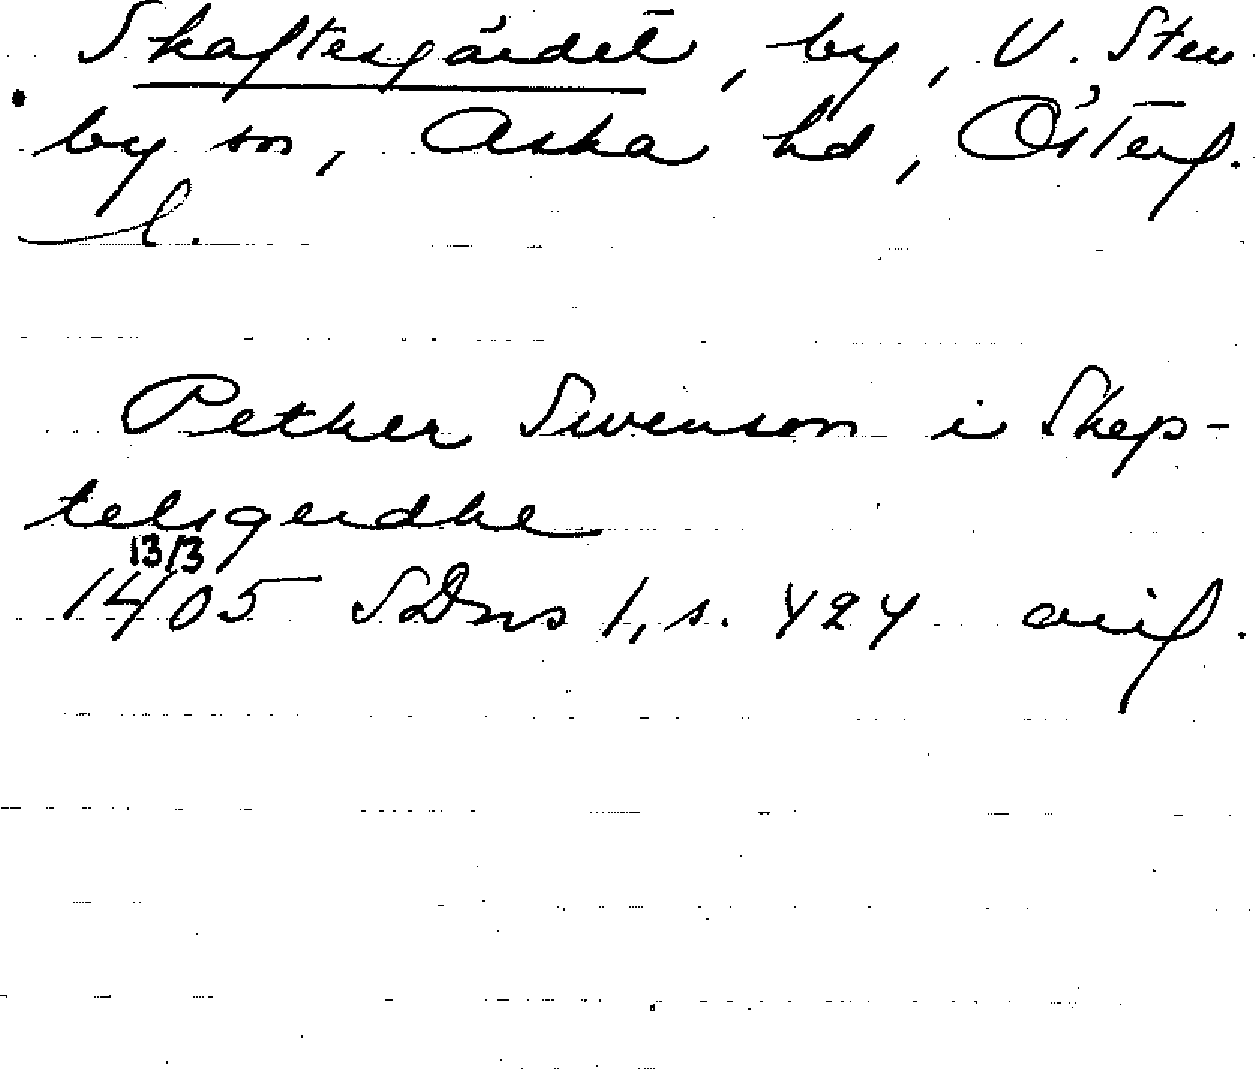 Skaftesgärdet, by, V. Sten
by sn, Aska hd, Österg.
l.
Pether Swenson i Skep-
telsgerdhe
13/3
1405 SDns 1, s. 424 avif.